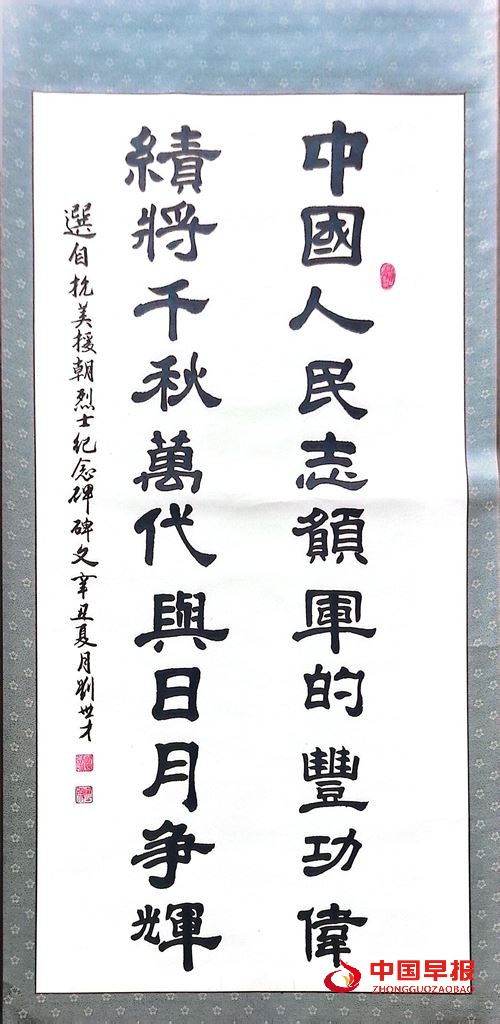 中國人民志願軍的豐功偉
績將千秋萬代與日月争輝
選自抗美援朝烈士纪念碑碑文辛丑夏月劉世才
中国早报
ZHONGGUOZAOBAO